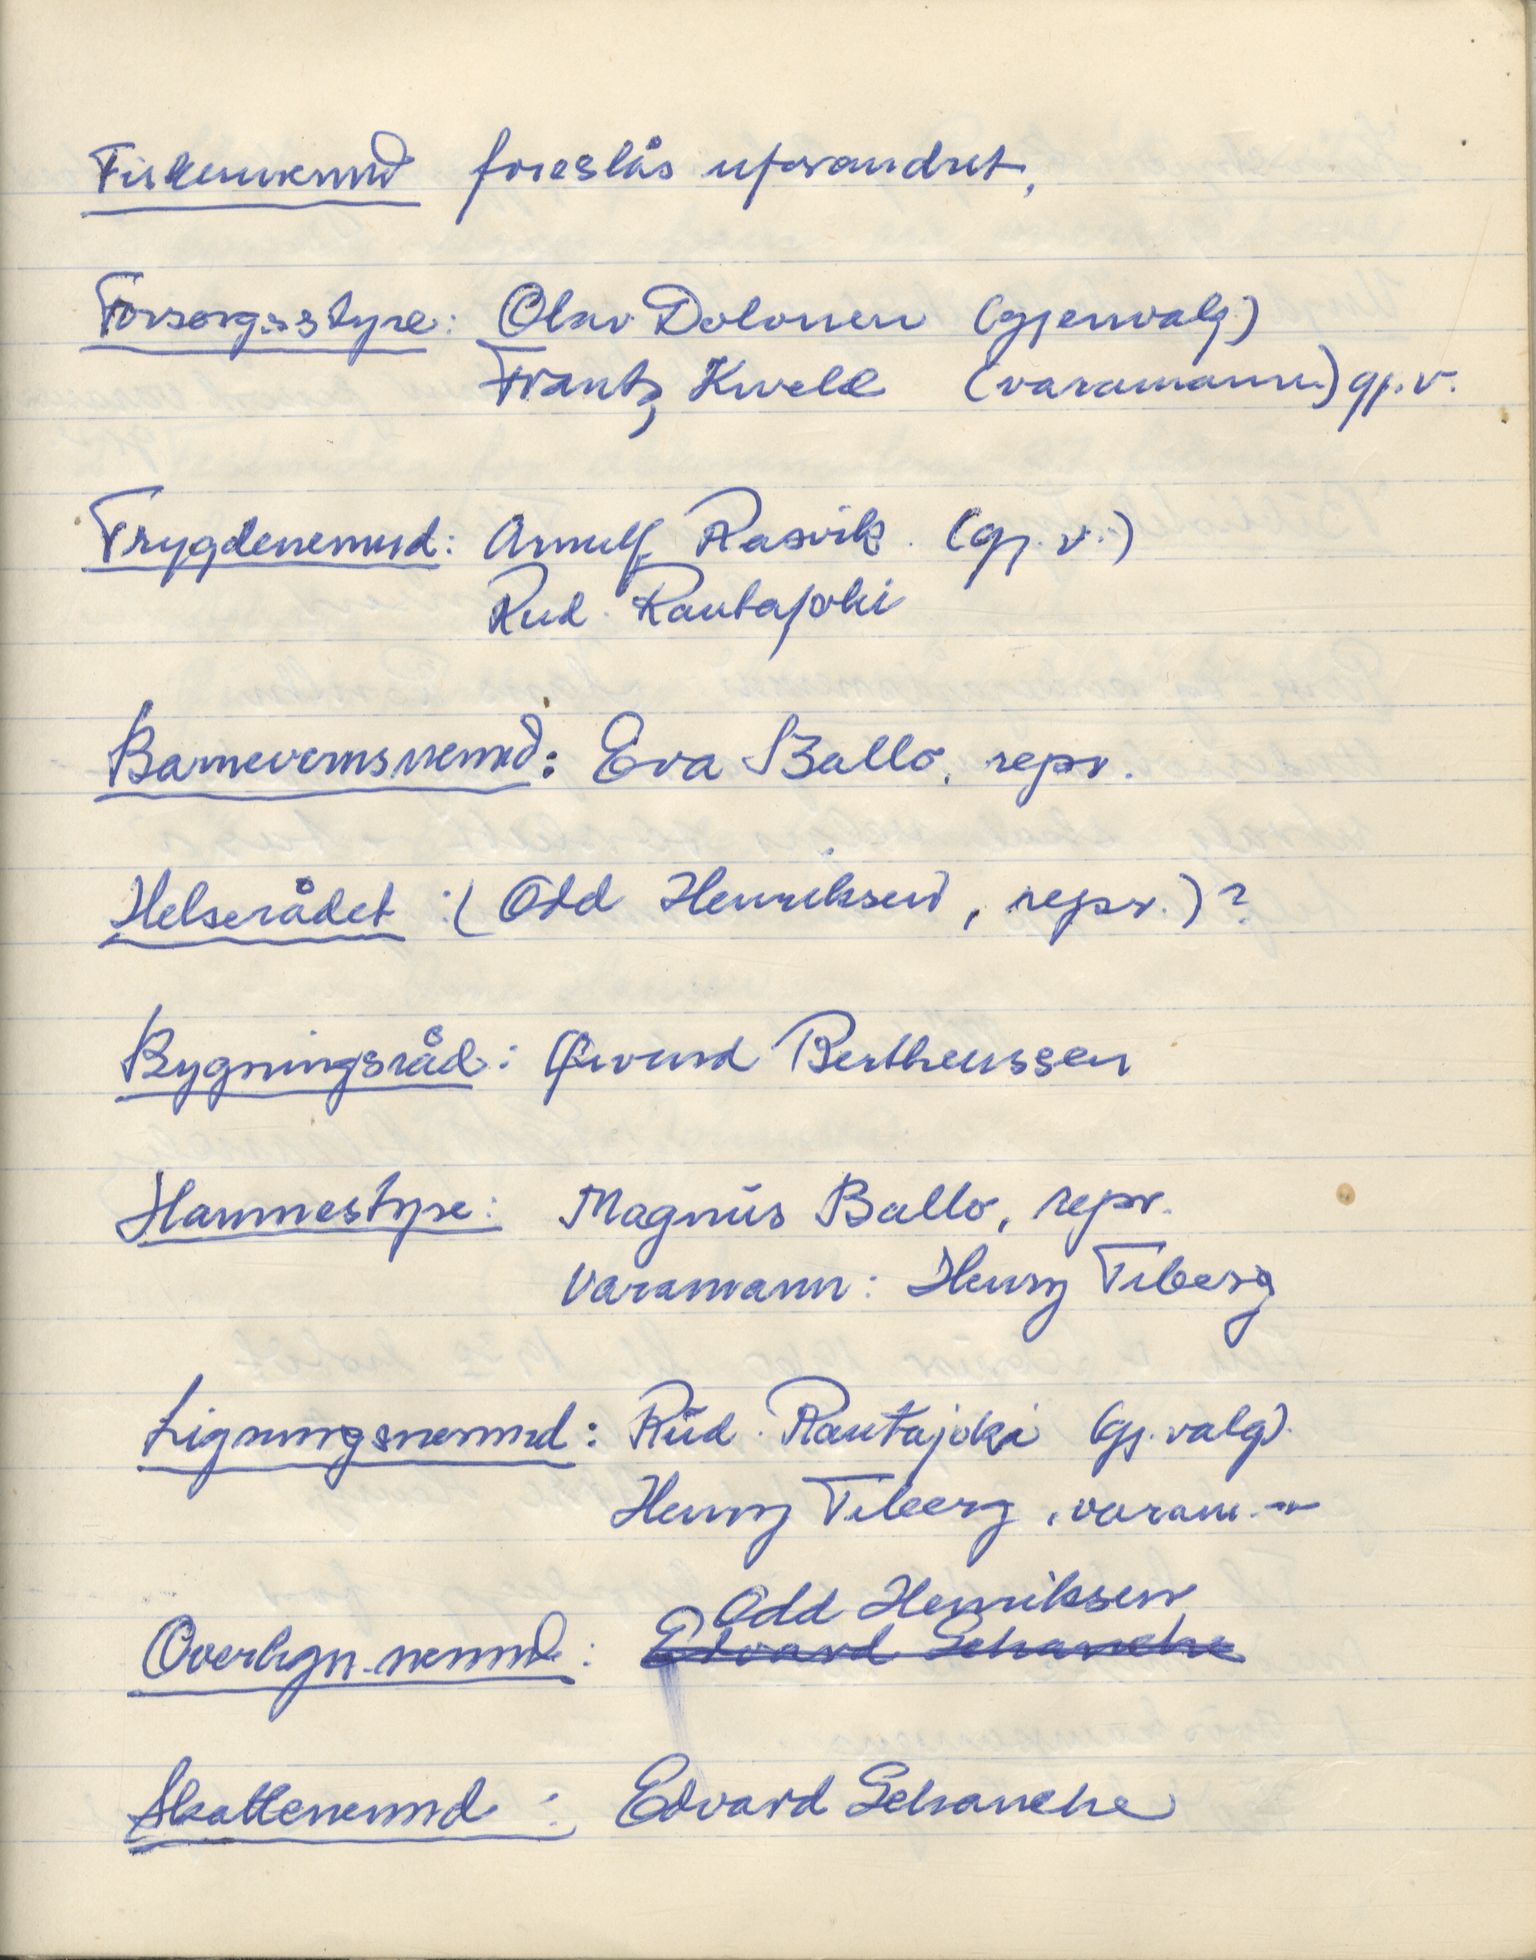 Fiskenemnd foreslås uforandret,
Forsorgsstyre: Olav Dolonen (gjenvalg)
Frantz Kvell (varamann) gj.v.
Trygdenemnd: Arnulf Rasvik. (gj.v.)
Rud. Rautajoki
Barnevernsnemnd: Eva Ballo, repr.
Helserådet: (Odd Henriksen, repr.)?
Bygningsråd: Øivind Bertheussen
Havnestyre: Magnus Ballo, repr.
Varamann: Henry Tiberg
Ligningsnemnd: Rud. Rautajoki (gj.valg).
Henry Tiberg, varam.
Odd Henriksen
Overlign.nemnd: Edvard Schanche
Skattenemnd: Edvard Schanche